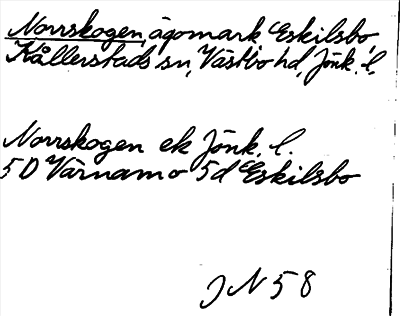 Norrskogen, ägomark, Eskilsbo,
Kållerstads sn, Västbo hd, Jönk. l.
Norrskogen ek Jönk. l.
5D Värnamo 5d Eskilsbo
JN 58